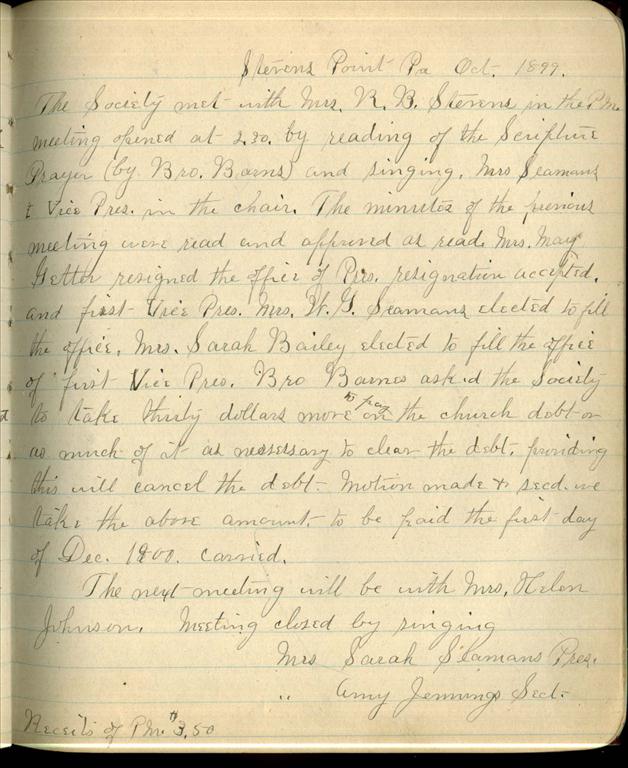 Stevens Point Pa Oct. 1899.
The Society met with Mrs. R. B. Stevens in the P.M.
meeting opened at 2.30. by reading of the Scripture
Prayer (by Bro. Barns) and singing. Mrs Seamans
1 Vice Pres. in the chair. The minutes of the previous
meeting were read and approved as read. Mrs. May
Getter resigned the office of Pres. resignation accepted.
and first Vice Pres. Mrs. W. G. Seamans elected to fill
the office. Mrs. Sarah Bailey elected to fill the office
of first Vice Pres. Bro Barnes asked the Society
to take thirty dollars more to pay on the church debt or
as much of it as nessessary to clear the debt, providing
this will cancel the debt. Motion made & secd. we
take the above amount. to be paid the first day
of Dec. 1900. carried.
The next meeting will be with Mrs. Helen
Johnson. Meeting closed by singing
Mrs Sarah Seamans Pres.
" Amy Jennings Sect.
Receits of P.M. $3.50